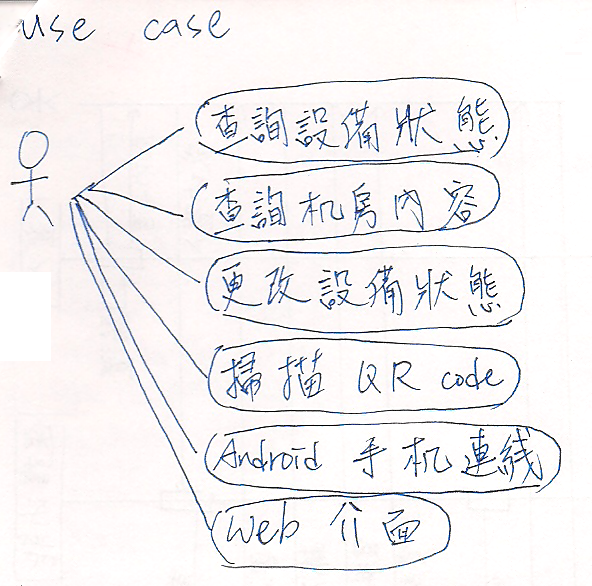 use case
查詢設備狀態
查詢机房內容
更改設備狀態
掃描 QR code
Android 手机連线
Web 介面